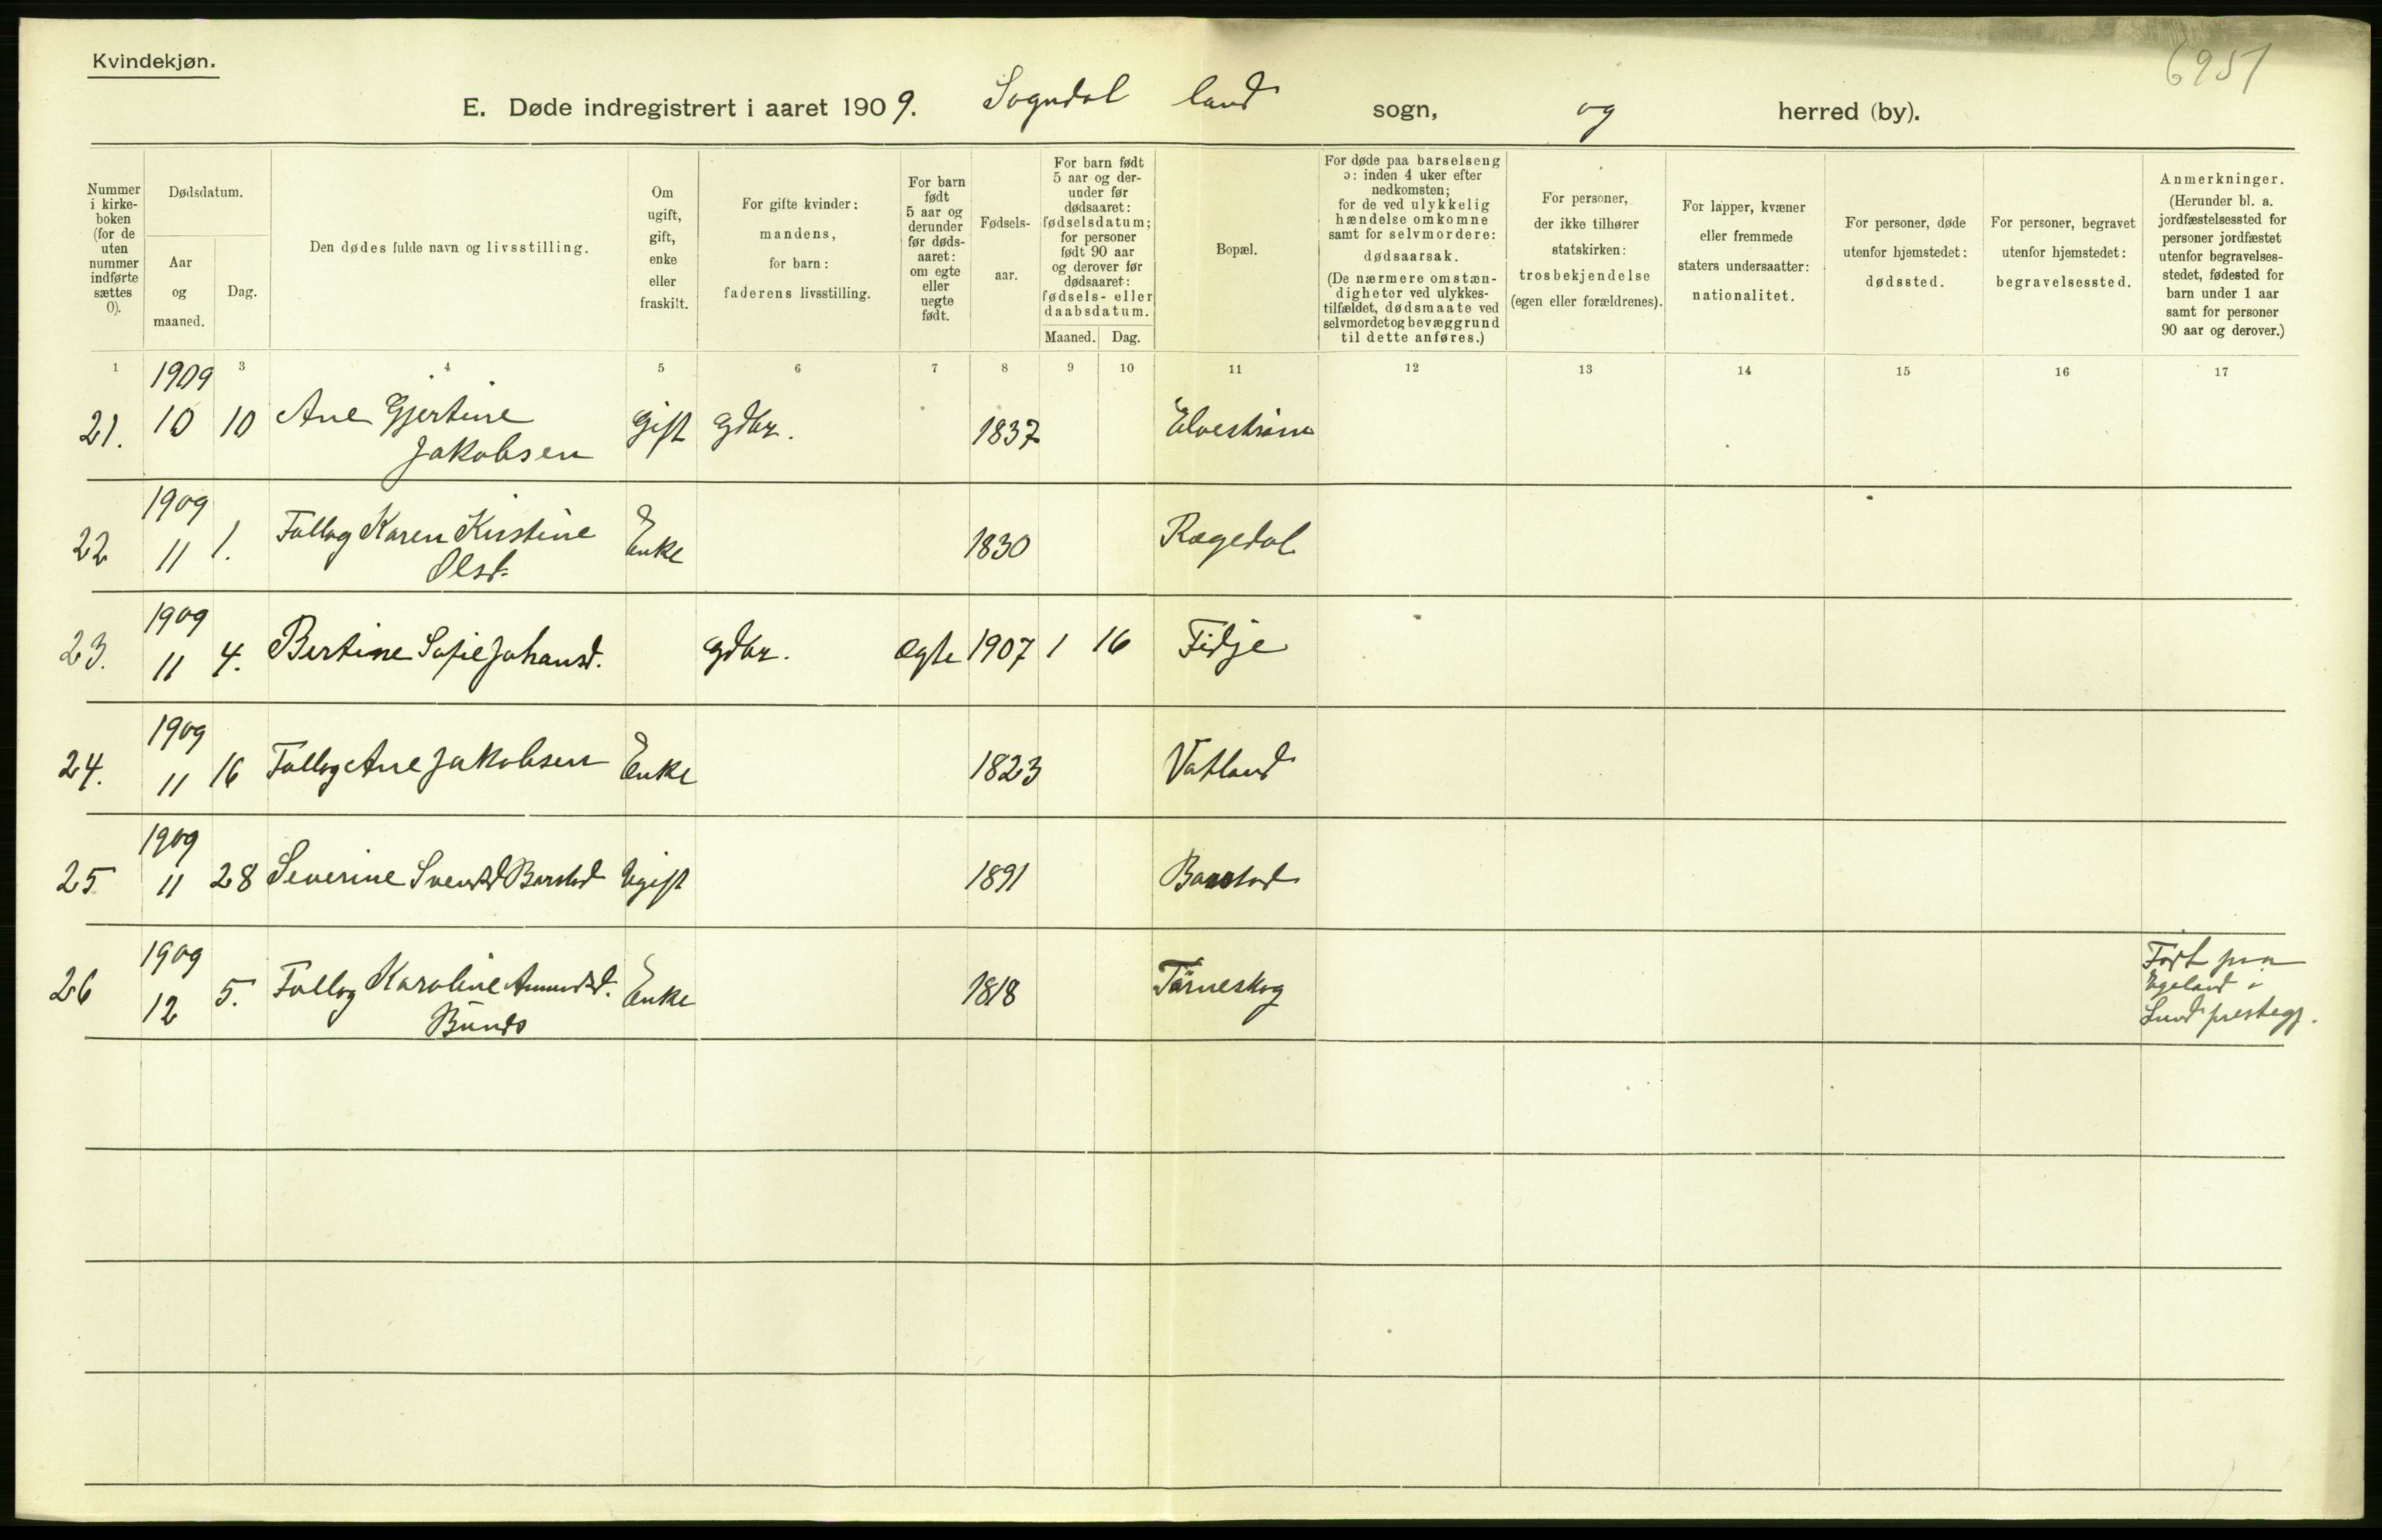 Kvindekjøn.
6951
E. Døde indregistrert i aaret 1909. Sogndal land sogn, og herred (by).
Nummer
i kirke-
boken
(for de
uten
nummer
indførte
sættes
0).
Dødsdatum.
Aar
og
maaned.
Dag.
Den dødes fulde navn og livsstilling.
Om
ugift,
gift,
enke
eller
fraskilt.
For gifte kvinder:
mandens,
for barn:
faderens livsstilling.
For barn
født
5 aar og
derunder
før døds-
aaret:
om egte
eller
uegte
født.
Fødsels-
aar.
For barn født
5 aar og der-
under før
dødsaaret:
fødselsdatum;
for personer
født 90 aar
og derover før
dødsaaret:
fødsels- eller
daabsdatum.
Maaned. Dag.
Bopæl.
For døde paa barselseng
ɔ: inden 4 uker efter
nedkomsten;
for de ved ulykkelig
hændelse omkomne
samt for selvmordere:
dødsaarsak.
(De nærmere omstæn-
digheter ved ulykkes-
tilfældet, dødsmaate ved
selvmordet og bevæggrund
til dette anføres.)
For personer,
der ikke tilhører
statskirken:
trosbekjendelse
(egen eller forældrenes).
For lapper, kvæner
eller fremmede
staters undersaatter:
nationalitet.
For personer, døde
utenfor hjemstedet:
dødssted.
For personer, begravet
utenfor hjemstedet:
begravelsessted.
Anmerkninger.
(Herunder bl. a.
jordfæstelsessted for
personer jordfæstet
utenfor begravelses-
stedet, fødested for
barn under 1 aar
samt for personer
90 aar og derover.)
1 3 4 5 6 7 8 9 10 11 12 13 14 15 16 17
1909
21. 10 10 Ane Gjertine Gift Gdbr. 1837 Elvestrøm
Jakobsen
1909
22 11 1. Fattig Karen Kirstine Enke 1830 Rægedal
Olsd.
1909
23. 11 4. Bertine Sofie Johansd. Gdbr. Ægte 1907 1 16 Fidje
1909
24. 11 16 Fattig Ane Jakobsen Enke 1823 Vatland
1909
25 11 28 Severine Svendsd Barstad Ugift 1891 Barstad
1909
26 12 5. Fattig Karoline Amundsd. Enke 1818 Tårneskog
Bunds
Født paa
Egeland i
Lund prestegj.